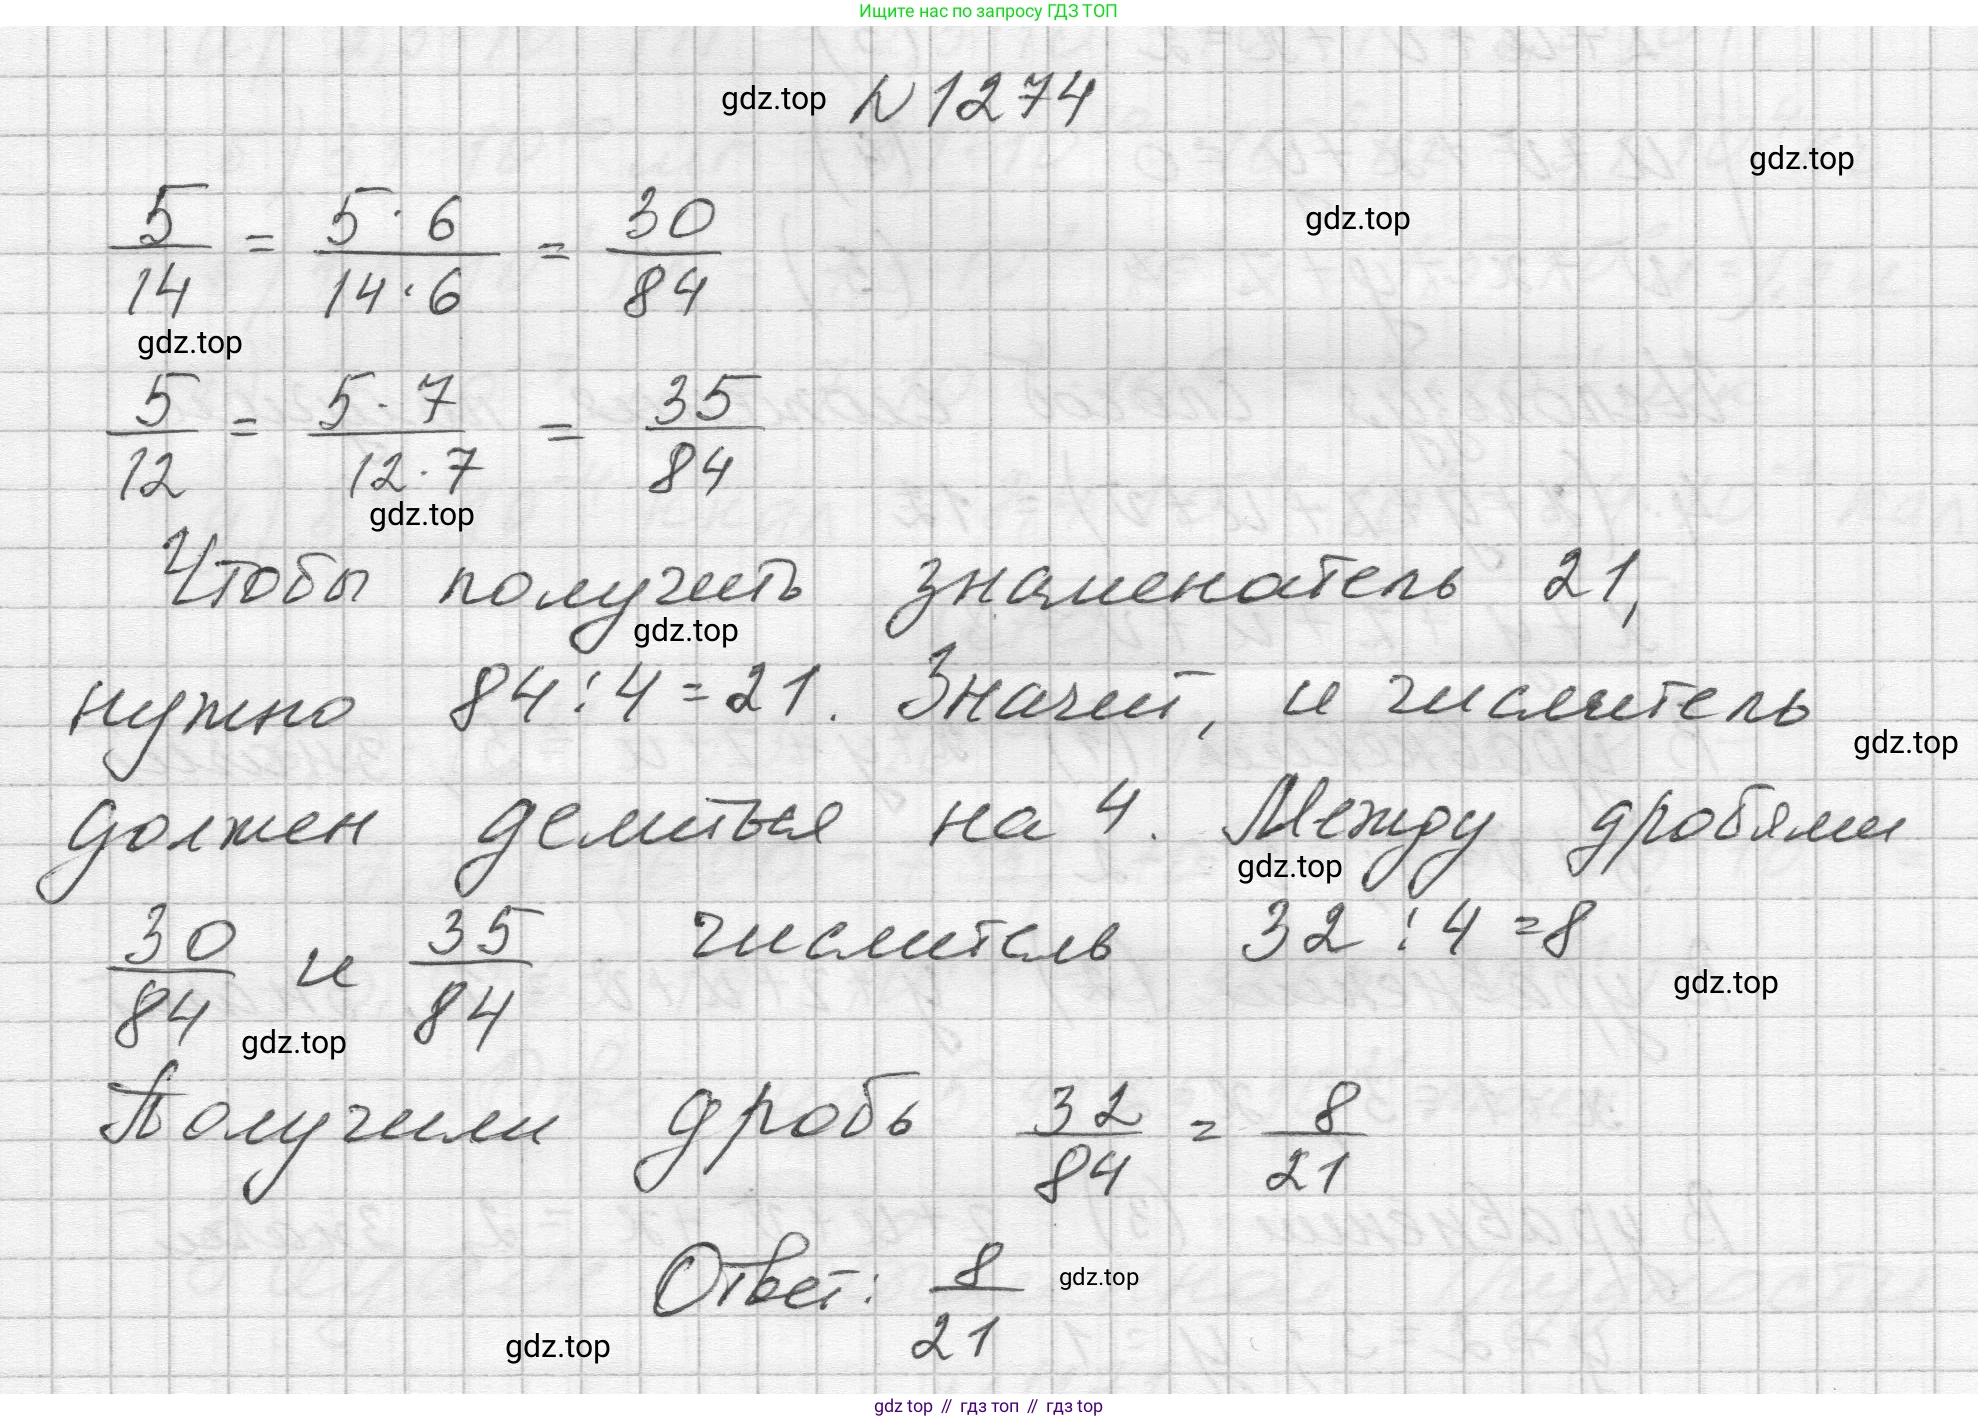 Ищите нас по запросу ГДЗ ТОП
gdz.top № 1274
gdz.top
gdz.top
5/14 = 5·6/14·6 = 30/84
gdz.top
5/12 = 5·7/12·7 = 35/84
gdz.top
Чтобы получить знаменатель 21,
gdz.top
нужно 84:4=21. Значит, и числитель
gdz.top
должен делиться на 4. Между дробями
gdz.top
30/84 и 35/84 числитель 32:4=8
gdz.top
gdz.top
Получили дробь 32/84 = 8/21
Ответ: 8/21
gdz.top
gdz.top
gdz top // гдз топ // гдз top